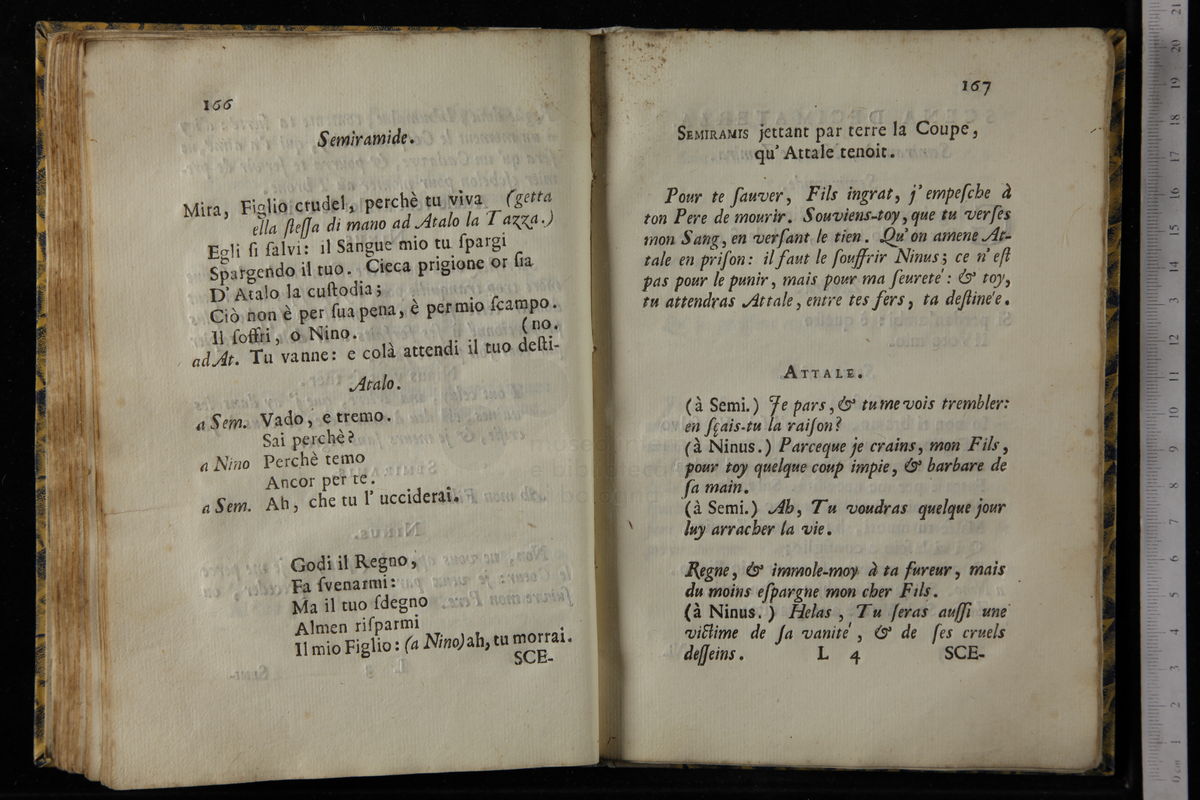 166
Semiramide.
Mira, Figlio crudel, perchè tu viva (getta
ella ſteſſa di mano ad Atalo la Tazza.)
Egli ſi ſalvi: il Sangue mio tu ſpargi
Spargendo il tuo. Cieca prigione or ſia
D' Atalo la cuſtodia;
Ciò non è per ſua pena, è per mio ſcampo.
Il ſoffri, o Nino. (no.
ad At. Tu vanne: e colà attendi il tuo deſti-
Atalo.
a Sem. Vado, e tremo.
Sai perchè?
a Nino Perchè temo
Ancor per te.
a Sem. Ah, che tu l' ucciderai.
Godi il Regno,
Fa ſvenarmi:
Ma il tuo ſdegno
Almen riſparmi
Il mio Figlio: (a Nino) ah, tu morrai.
SCE-
167
SEMIRAMIS jettant par terre la Coupe,
qu' Attale tenoit.
Pour te ſauver, Fils ingrat, j' empeſche à
ton Pere de mourir. Souviens-toy, que tu verſes
mon Sang, en verſant le tien. Qu' on amene At-
tale en priſon: il faut le ſouffrir Ninus; ce n' eſt
pas pour le punir, mais pour ma ſeureté: & toy,
tu attendras Attale, entre tes fers, ta deſtine'e.
ATTALE.
(à Semi.) Je pars, & tu me vois trembler:
en ſçais-tu la raiſon?
(à Ninus.) Parceque je crains, mon Fils,
pour toy quelque coup impie, & barbare de
ſa main.
(à Semi.) Ah, Tu voudras quelque jour
luy arracher la vie.
Regne, & immole-moy à ta fureur, mais
du moins eſpargne mon cher Fils.
(à Ninus.) Helas, Tu ſeras auſſi une
victime de ſa vanité, & de ſes cruels
deſſeins. L 4 SCE-